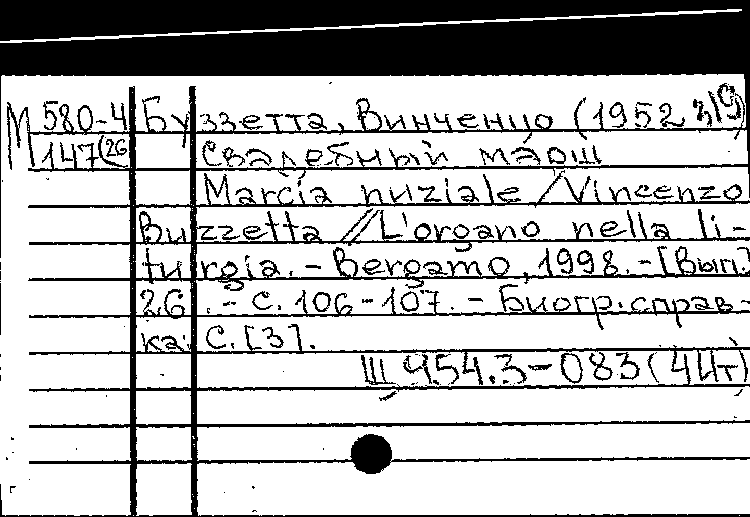 М 580-4 Буззетта, Винченцо (1952
147(26 Свадебный марш
Marcia nuziale / Vincenzo
Buzzetta // L'organo nella li-
turgia. - Bergamo, 1998. - [Вып.]
26. - С. 106-107. - Биогр. справ-
ка: С. [3].
Щ 954.3-083(4Ит)